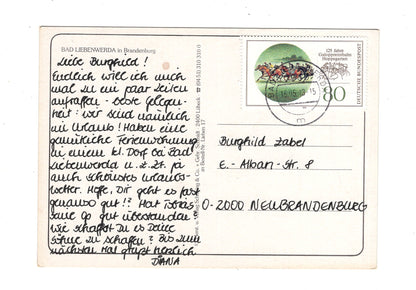 BAD LIEBENWERDA in Brandenburg
Liebe Burghild!
Endlich will ich mich
mal zu ein paar Zeilen
aufraffen - beste Gelegen-
heit: wir sind nämlich
im Urlaub! Haben eine
gemütliche Ferienwohnung
in einem kl. Dorf bei Bad
Liebenwerda u. z. Zt. ja
auch schönstes Urlaubs-
wetter. Hoffe, Dir geht es fast
genauso gut!? Hat Tobias
alles gut überstanden?
Wie schaffst Du es Deine
Söhne zu schaffen? Bis zum
nächsten Mal grüßt herzlich
DANA
125 Jahre
Galopprennbahn
Hoppegarten
DEUTSCHE BUNDESPOST
80
Burghild Zabel
E.-Alban-Str. 8
O-2000 NEUBRANDENBURG